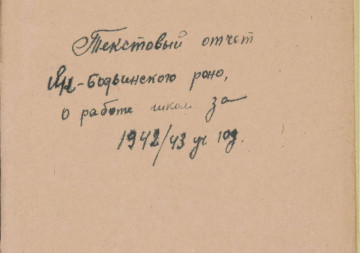 Текстовый отчет
Як-Бодьинского роно,
о работе школ за
1942/43 уч год.